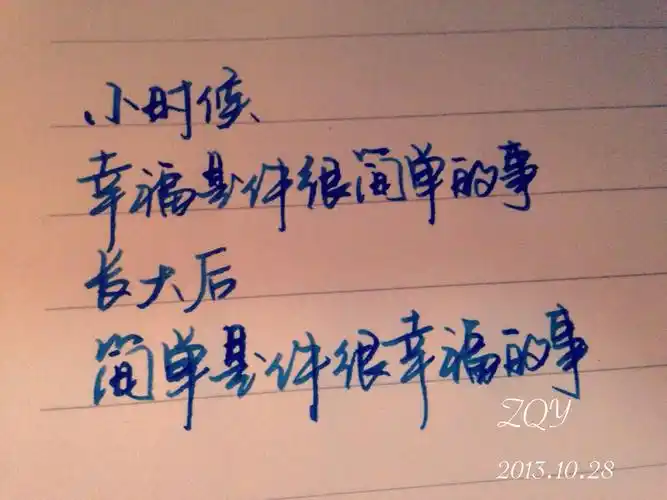 小时候、
幸福是件很简单的事
长大后
简单是件很幸福的事
ZQY
2013.10.28